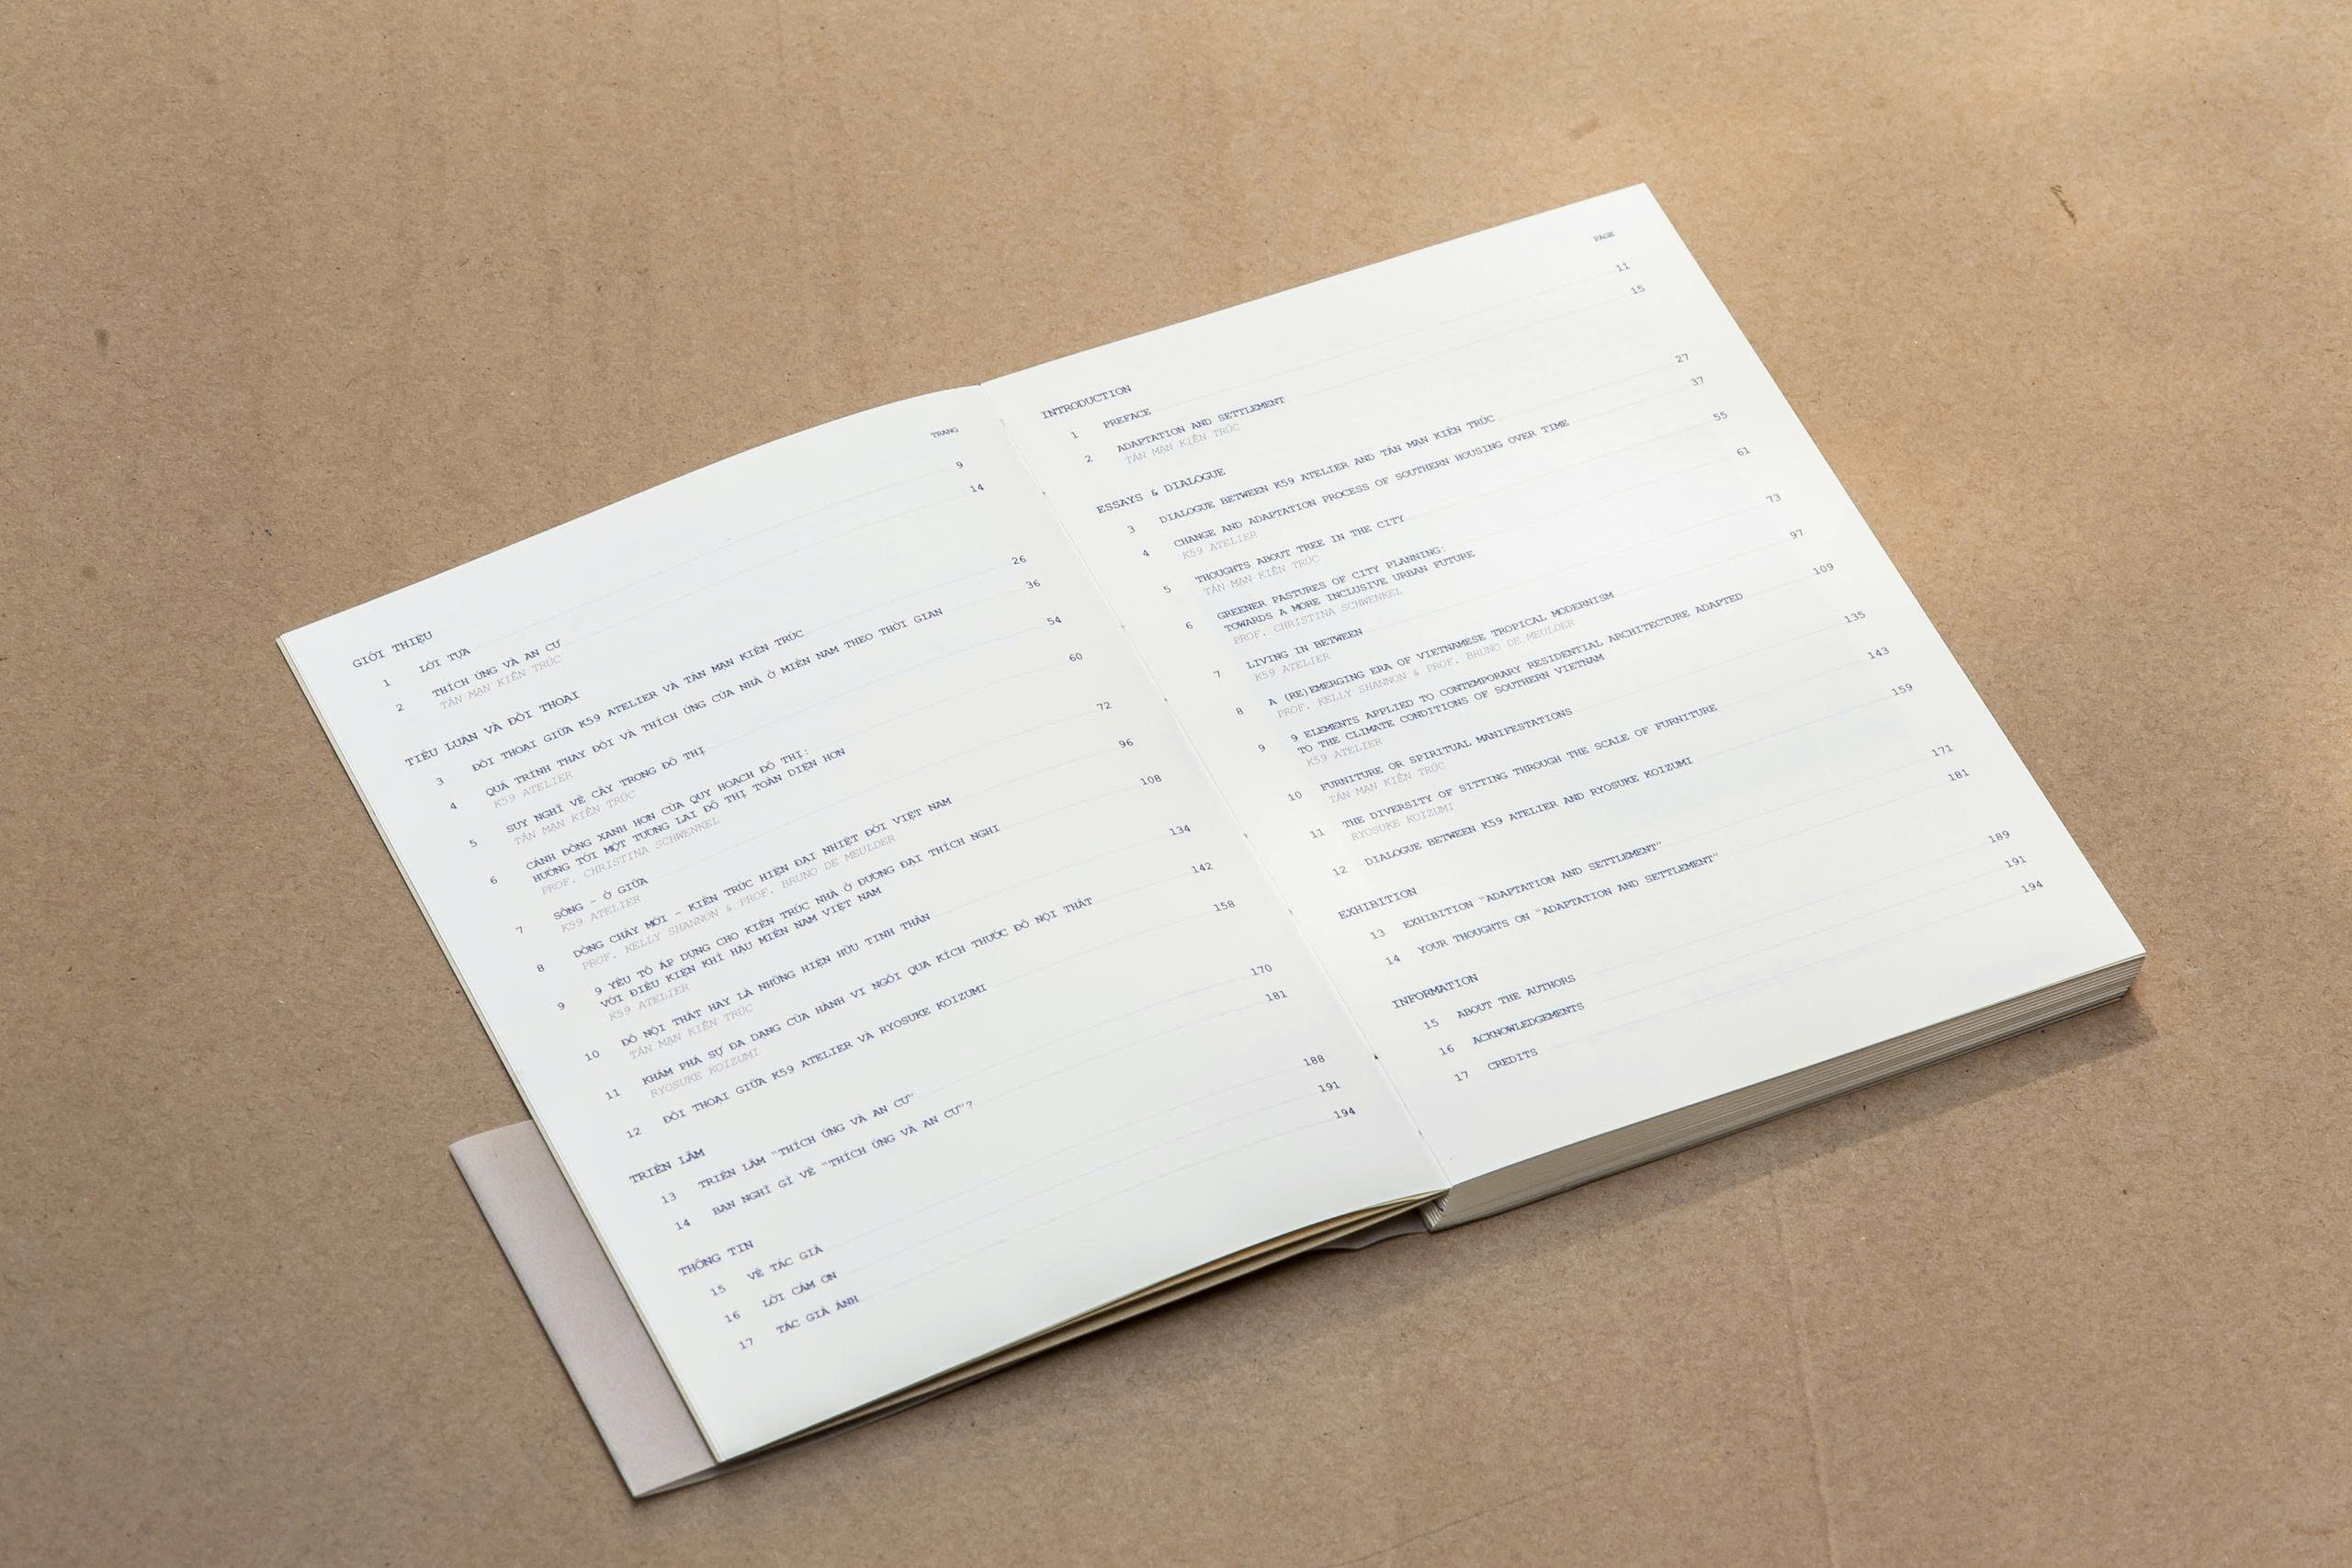 TRANG
GIỚI THIỆU
1 LỜI TỰA 9
2 THÍCH ỨNG VÀ AN CƯ 14
TẢN MẠN KIẾN TRÚC
TIỂU LUẬN VÀ ĐỐI THOẠI
3 ĐỐI THOẠI GIỮA K59 ATELIER VÀ TẢN MẠN KIẾN TRÚC 26
4 QUÁ TRÌNH THAY ĐỔI VÀ THÍCH ỨNG CỦA NHÀ Ở MIỀN NAM THEO THỜI GIAN 36
K59 ATELIER
5 SUY NGHĨ VỀ CÂY TRONG ĐÔ THỊ 54
TẢN MẠN KIẾN TRÚC
6 CÁNH ĐỒNG XANH HƠN CỦA QUY HOẠCH ĐÔ THỊ: 60
HƯỚNG TỚI MỘT TƯƠNG LAI ĐÔ THỊ TOÀN DIỆN HƠN
PROF. CHRISTINA SCHWENKEL
7 SỐNG - Ở GIỮA 72
K59 ATELIER
8 DÒNG CHẢY MỚI - KIẾN TRÚC HIỆN ĐẠI NHIỆT ĐỚI VIỆT NAM 96
PROF. KELLY SHANNON & PROF. BRUNO DE MEULDER
9 9 YẾU TỐ ÁP DỤNG CHO KIẾN TRÚC NHÀ Ở ĐƯƠNG ĐẠI THÍCH NGHI 108
VỚI ĐIỀU KIỆN KHÍ HẬU MIỀN NAM VIỆT NAM
K59 ATELIER
10 ĐỒ NỘI THẤT HAY LÀ NHỮNG HIỆN HỮU TINH THẦN 134
TẢN MẠN KIẾN TRÚC
11 KHÁM PHÁ SỰ ĐA DẠNG CỦA HÀNH VI NGỒI QUA KÍCH THƯỚC ĐỒ NỘI THẤT 142
RYOSUKE KOIZUMI
12 ĐỐI THOẠI GIỮA K59 ATELIER VÀ RYOSUKE KOIZUMI 158
TRIỂN LÃM
13 TRIỂN LÃM "THÍCH ỨNG VÀ AN CƯ" 170
14 BẠN NGHĨ GÌ VỀ "THÍCH ỨNG VÀ AN CƯ"? 181
THÔNG TIN
15 VỀ TÁC GIẢ 188
16 LỜI CẢM ƠN 191
17 TÁC GIẢ ẢNH 194
PAGE
INTRODUCTION
1 PREFACE 11
2 ADAPTATION AND SETTLEMENT 15
TẢN MẠN KIẾN TRÚC
ESSAYS & DIALOGUE
3 DIALOGUE BETWEEN K59 ATELIER AND TẢN MẠN KIẾN TRÚC 27
4 CHANGE AND ADAPTATION PROCESS OF SOUTHERN HOUSING OVER TIME 37
K59 ATELIER
5 THOUGHTS ABOUT TREE IN THE CITY 55
TẢN MẠN KIẾN TRÚC
6 GREENER PASTURES OF CITY PLANNING: 61
TOWARDS A MORE INCLUSIVE URBAN FUTURE
PROF. CHRISTINA SCHWENKEL
7 LIVING IN BETWEEN 73
K59 ATELIER
8 A (RE)EMERGING ERA OF VIETNAMESE TROPICAL MODERNISM 97
PROF. KELLY SHANNON & PROF. BRUNO DE MEULDER
9 9 ELEMENTS APPLIED TO CONTEMPORARY RESIDENTIAL ARCHITECTURE ADAPTED 109
TO THE CLIMATE CONDITIONS OF SOUTHERN VIETNAM
K59 ATELIER
10 FURNITURE OR SPIRITUAL MANIFESTATIONS 135
TẢN MẠN KIẾN TRÚC
11 THE DIVERSITY OF SITTING THROUGH THE SCALE OF FURNITURE 143
RYOSUKE KOIZUMI
12 DIALOGUE BETWEEN K59 ATELIER AND RYOSUKE KOIZUMI 159
EXHIBITION
13 EXHIBITION "ADAPTATION AND SETTLEMENT" 171
14 YOUR THOUGHTS ON "ADAPTATION AND SETTLEMENT" 181
INFORMATION
15 ABOUT THE AUTHORS 189
16 ACKNOWLEDGEMENTS 191
17 CREDITS 194